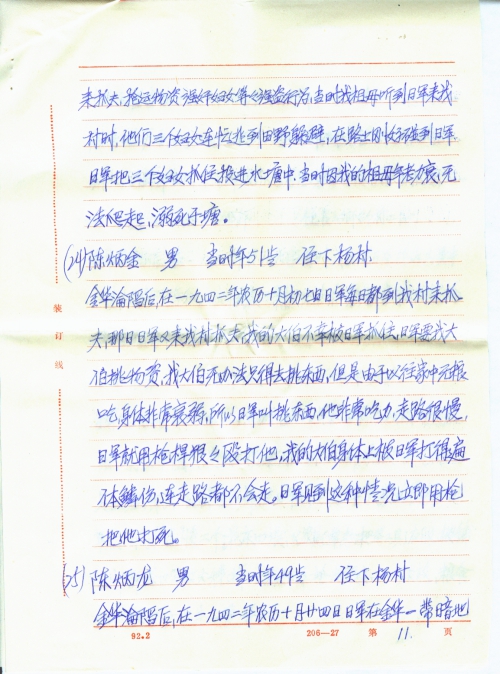 来抓夫,抢运物资强奸妇女等々强盗行为,当时我祖母听到日军来我
村时,他们三个妇女连忙逃到田野躲避,在路上刚好碰到日军
日军把三个妇女抓住投进水塘中,当时因我的祖母年老力衰,无
法爬起,溺死于塘。
(24)陈炳金 男 当时年51岁 住下杨村
金华沦陷后,在一九四二年农历十月初七日日军每日都到我村来抓
夫,那日日军又来我村抓夫,我的大伯不幸被日军抓住,日军要我大
伯挑物资,我大伯无办法只得去挑东西,但是由于以往家中无粮
吃身体非常衰弱,所以日军叫挑东西,他非常吃力,走路很慢,
日军就用枪桿狠々殴打他,我的大伯身体上被日军打得遍
体鳞伤,连走路都不会走。日军见到这种情况立即用枪
把他打死。
(25)陈炳龙 男 当时年49岁 住下杨村
金华沦陷后,在一九四二年农历十月廿四日日军在金华一带暗地
装订线
92.2 206—27 第 11. 页